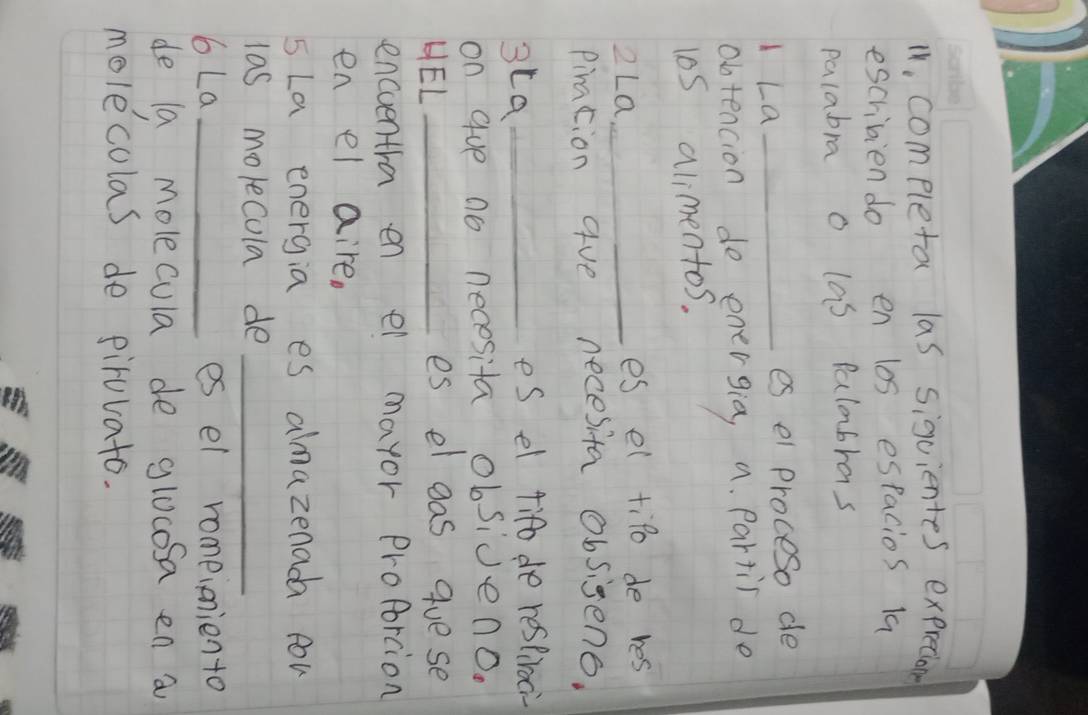 11. completa las siguientes expreciones
escribiendo en los espacios la
palabra o las Palabras
1 La __________ es el Proceso de
obtencion de energia, a. Partir de
los alimentos.
2 La __________ es el tipo de res
piracion que necesita obsigeno.
3 La __________ es el tipo de respiraci-
on que no necesita obsijeno.
4 EL __________ es el gas que se
encuentra en el mayor Proporcion
en el aire.
5 La energia es almazenada por
las molecula de __________
6 La __________ es el rompimiento
de la molecula de glucosa en 2
moléculas de piruvato.
Scribe